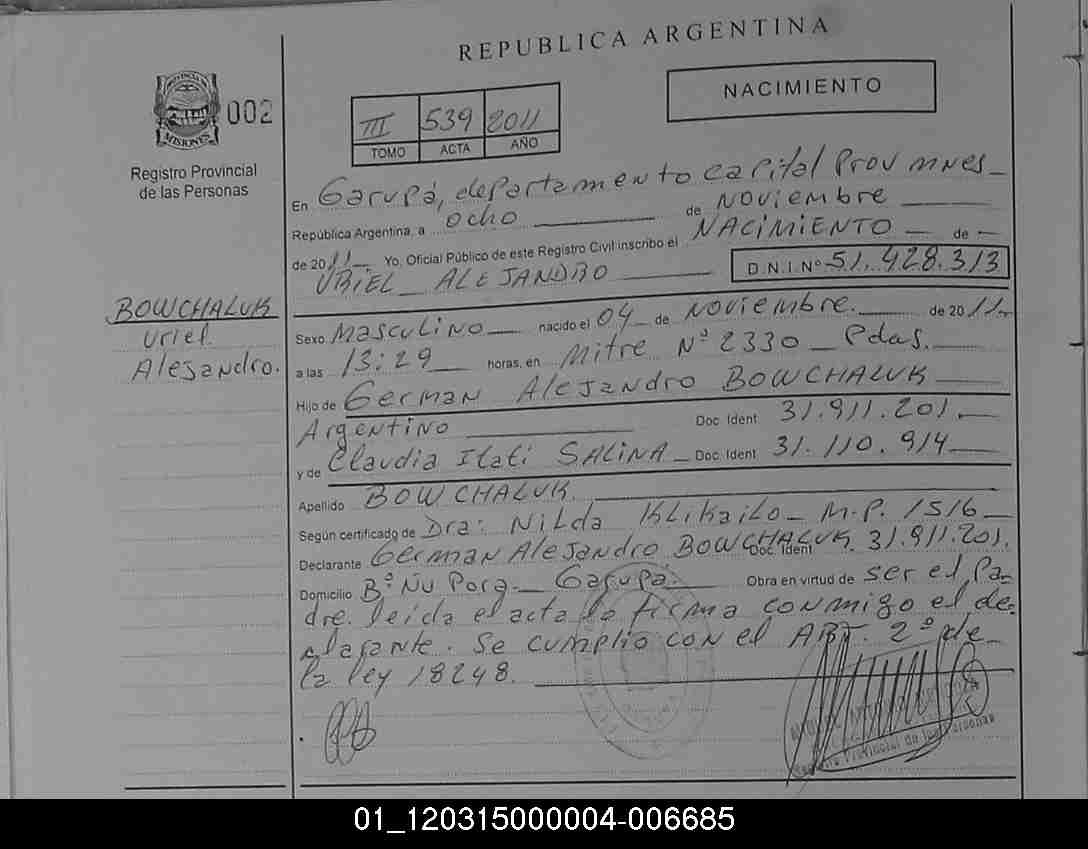 REPUBLICA ARGENTINA
PROVINCIA DE
MISIONES
002
Registro Provincial
de las Personas
III 539 2011
TOMO ACTA AÑO
NACIMIENTO
En Garupá, departamento capital Prov mnes
República Argentina, a ocho de Noviembre
de 2011 Yo, Oficial Público de este Registro Civil inscribo el NACIMIENTO de
URIEL ALEJANDRO D.N.I.Nº 51.428.313
BOWCHALUK
Uriel
Alejandro.
Sexo Masculino nacido el 04 de Noviembre. de 2011
a las 13:29 horas, en Mitre Nº 2330 Pdas.
Hijo de German Alejandro BOWCHALUK
Argentino Doc. Ident 31.911.201.
y de Claudia Itati SALINA Doc. Ident 31.110.914
Apellido BOWCHALUK.
Según certificado de Dra: Nilda Klikailo M.P. 1516
Declarante German Alejandro BOWCHALUK. Doc. Ident 31.911.201.
Domicilio Bº Ñu Pora. Garupa. Obra en virtud de ser el Pa-
dre. leida el acta la firma conmigo el de-
clarante. Se cumplio con el ART. 2º de
la ley 18248.
Registro Provincial de las Personas
01_120315000004-006685